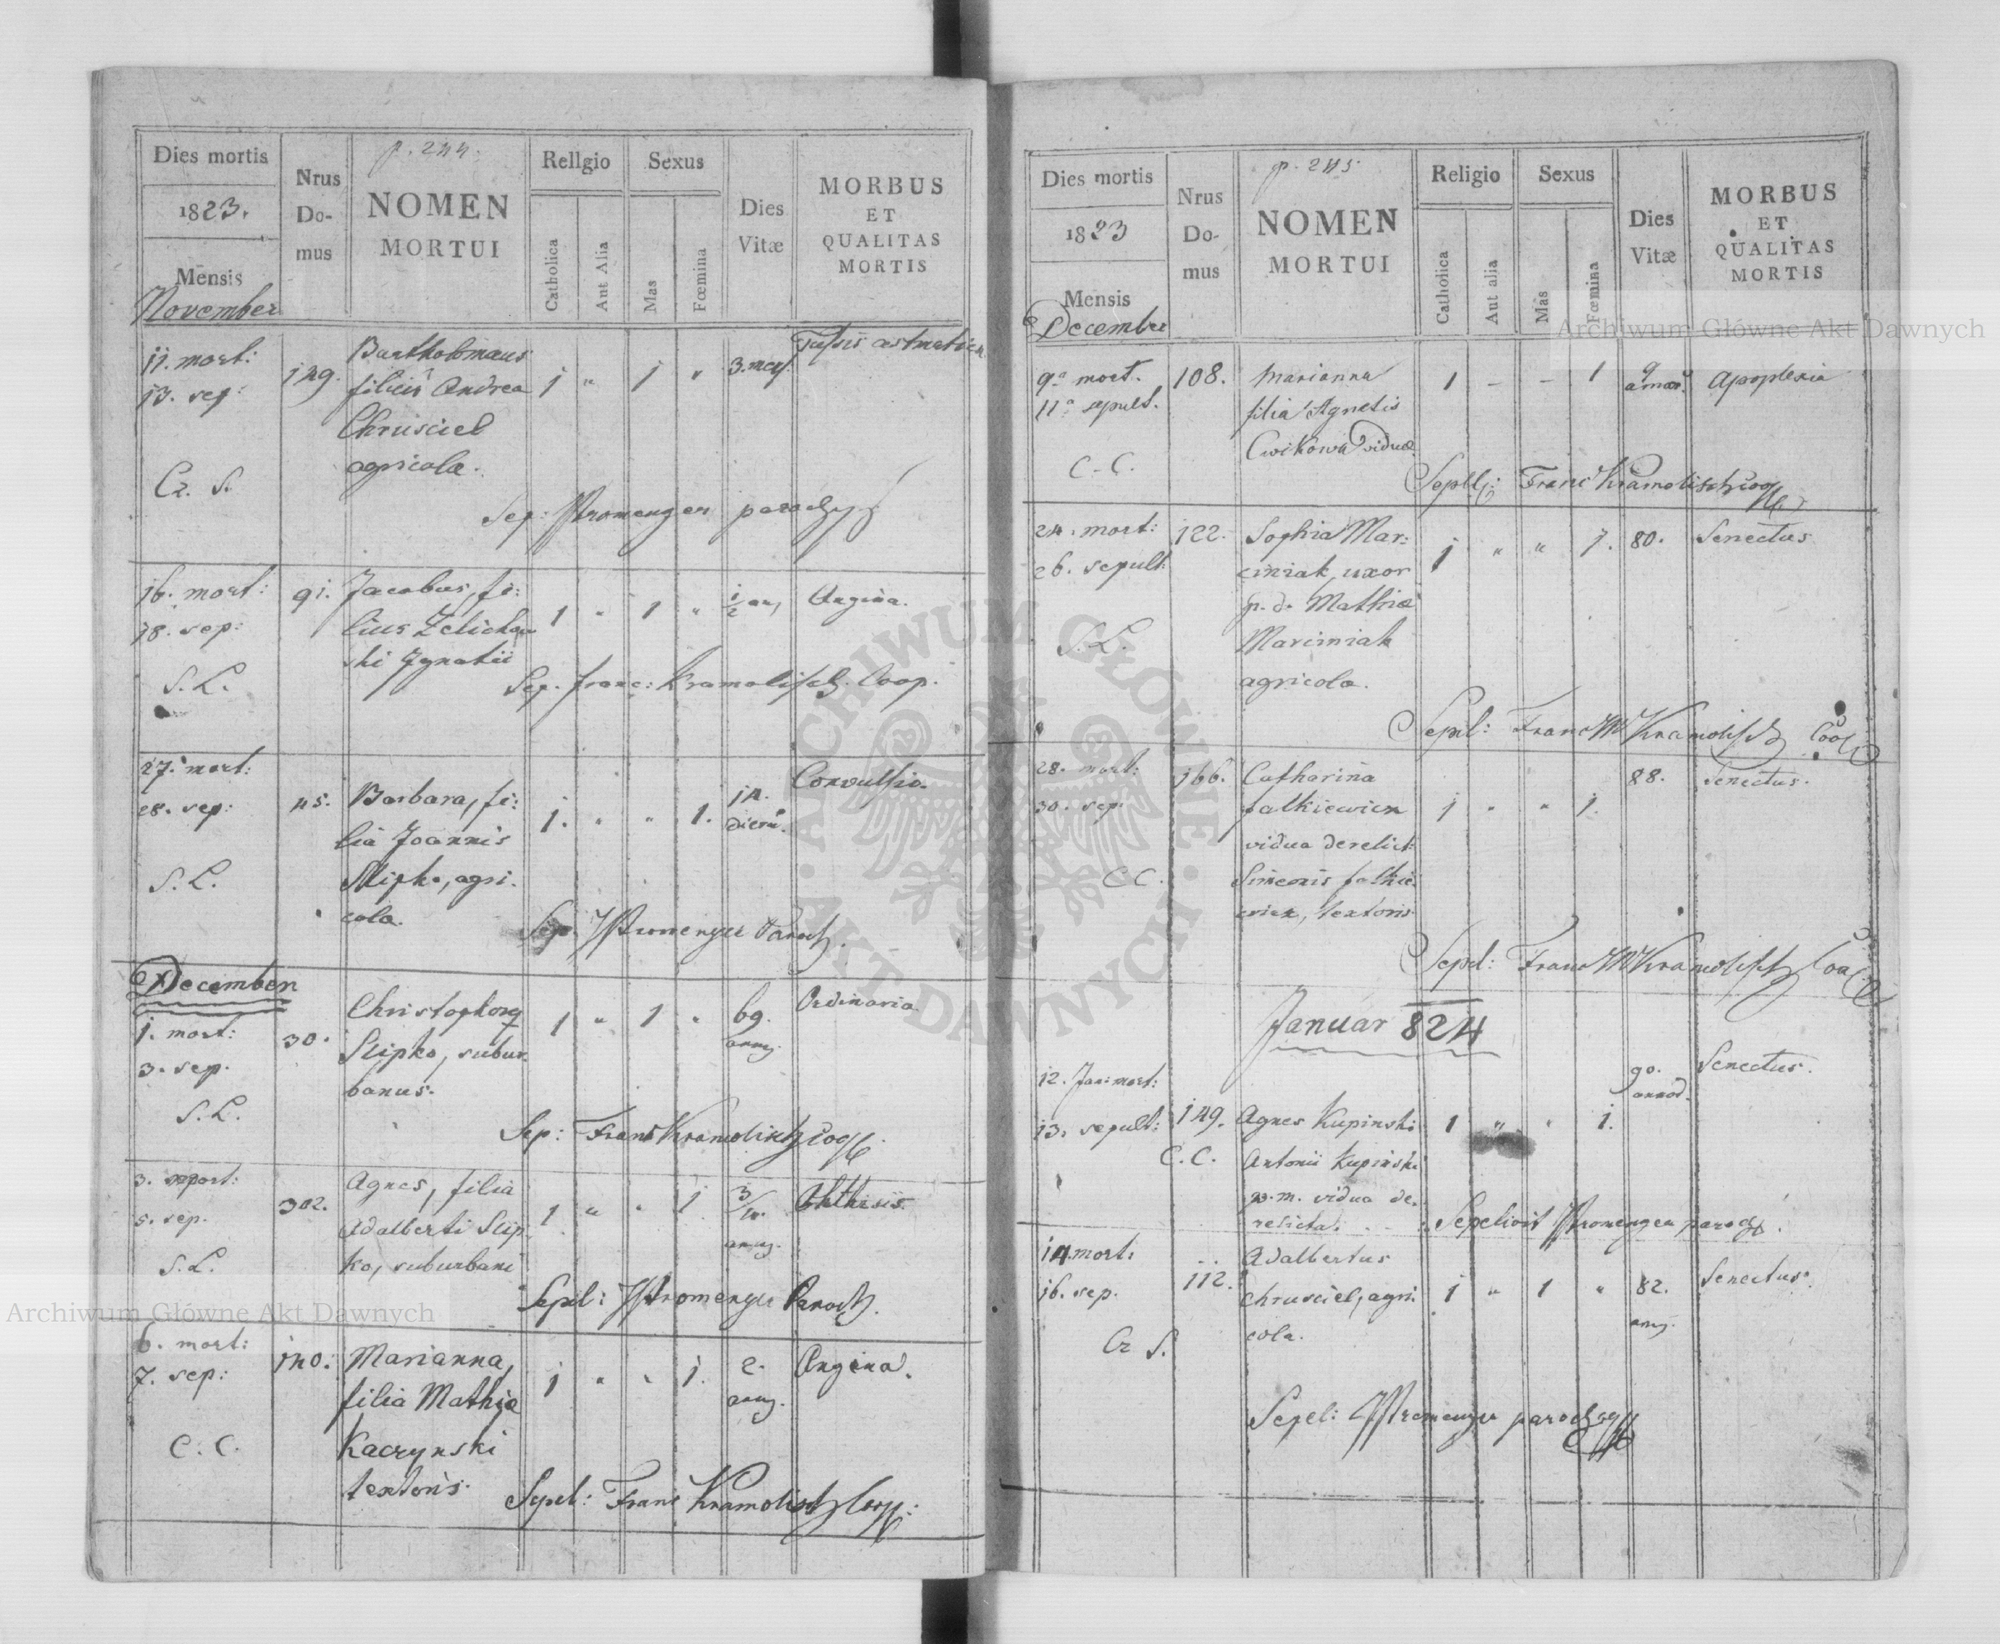 p. 244.
Dies mortis
1823.
Mensis
November
Nrus
Do-
mus
NOMEN
MORTUI
Religio
Catholica
Aut Alia
Sexus
Mas
Fœmina
Dies
Vitæ
MORBUS
ET
QUALITAS
MORTIS
11. mort: 149. Bartholomaus 1 " 1 " 3. mens Tussis astmatica
13. sep: filius Andrea
Chrusciel
agricolæ.
Cz. S.
Sep: Stromenger paroch
16. mort: 91. Jacobus, fi: 1 " 1 " 1/2 an, Angina.
18. sep: lius Zelichow
ski Ignatii
S. L.
Sep. franc: Kramolisch. Coop.
27. mort: 45. Barbara, fi: 1. " " 1. 14. dierū Convulsio.
28. sep: lia Joannis
Slipko, agri.
cola.
S. L.
Sep. Stromenger Paroch.
December
1. mort: 30. Christophorg 1 " 1 " 69. anng. Ordinaria
3. sep. Slipko, subur.
banus.
S. L.
Sep: Franc Kramolisch coop
3. mort: 302. Agnes, filia 1 " " 1 3/4. anng. Phthisis
5. sep. Adalberti Slip
ko, suburbani
S. L.
Sepel: Stromenger Paroch.
6. mort: 140. Marianna, 1 " " 1. 2. anng. Angina.
7. sep: filia Mathiæ
Kaczynski
textoris.
C. C.
Sepel: Franc Kramolisch Coop:
p. 245.
Dies mortis
1823
Mensis
December
Nrus
Do-
mus
NOMEN
MORTUI
Religio
Catholica
Aut alia
Sexus
Mas
Fœmina
Dies
Vitæ
MORBUS
ET
QUALITAS
MORTIS
9a mort. 108. Marianna 1 - - 1 9 Apoplexia
11a sepult. filia Agnetis
Cwikowa viduæ
C. C.
Sepel: Franc Kramolisch coop
24. mort: 122. Sophia Mar: 1 " " 1. 80. Senectus
26. sepult: ciniak, uxor
p. d. Mathiæ
Marciniak
agricola.
S. L.
Sepel: Franc Kramolisch Coop
28. mort: 166. Catharina 1 " " 1. 88. Senectus.
30. sep. falkiewicz
vidua derelict:
Simeonis falkie
wicz, textoris
C C.
Sepel: Franc Kramolisch Coop
Januar 824
12. Jan: mort: 149. Agnes Kupinski 1 " " 1. 90. annor. Senectus.
13. sepult: Antonii Kupinski
p. m. vidua de,
relicta.
C. C.
Sepelivit Stromenger paroch.
14. mort: 112. Adalbertus 1 " 1 " 82. anng. Senectus.
16. sep. Chrusciel, agri:
cola.
Cz S.
Sepel: Stromenger paroch
Archiwum Główne Akt Dawnych
Archiwum Główne Akt Dawnych
ARCHIWUM GŁÓWNE · AKT DAWNYCH ·